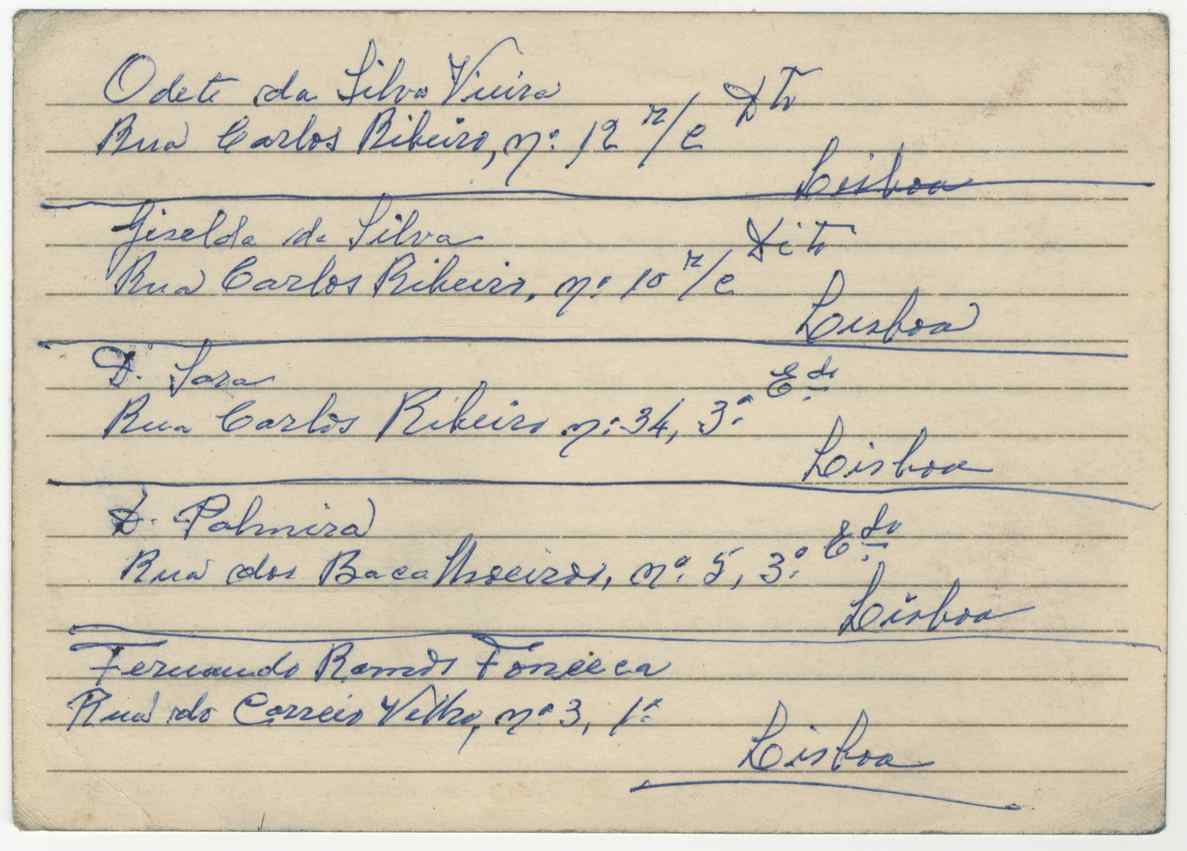 Odete da Silva Vieira
Rua Carlos Ribeiro, nº 12 r/c Dtº
Lisboa
Giselda da Silva
Rua Carlos Ribeiro, nº 10 r/c Ditº
Lisboa
D. Sara
Rua Carlos Ribeiro nº 34, 3º Edº
Lisboa
D. Palmira
Rua dos Bacalhoeiros, nº 5, 3º Edº
Lisboa
Fernando Ramos Fonseca
Rua do Correio Velho, nº 3, 1º
Lisboa